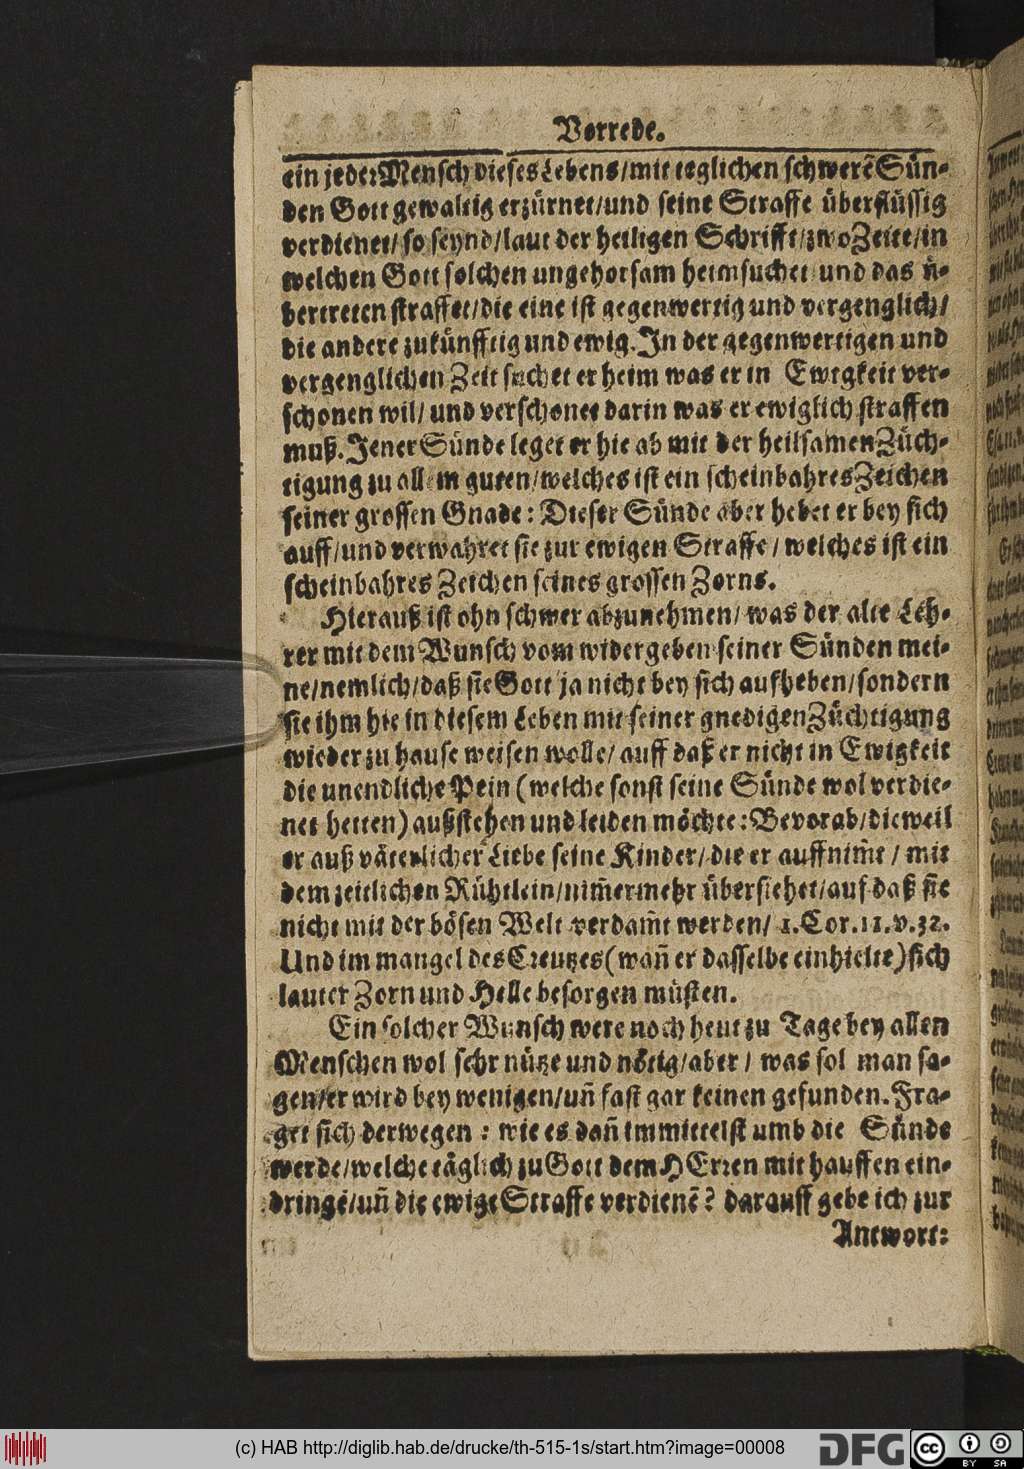 Vorrede.
ein jeder Mensch dieses Lebens/mit teglichen schwerẽ Sün-
den Gott gewaltig erzürnet/und seine Straffe überflüssig
verdienet/so seynd/laut der heiligen Schrifft/zwo Zeite/in
welchen Gott solchen ungehorsam heimsuchet und das ü-
bertreten straffet/die eine ist gegenwertig und vergenglich/
die andere zukünfftig und ewig. In der gegenwertigen und
vergenglichen Zeit suchet er heim was er in Ewigkeit ver-
schonen wil/ und verschonet darin was er ewiglich straffen
muß. Jener Sünde leget er hie ab mit der heilsamen Züch-
tigung zu allem guten/welches ist ein scheinbahres Zeichen
seiner grossen Gnade: Dieser Sünde aber hebet er bey sich
auff/und verwahret sie zur ewigen Straffe/ welches ist ein
scheinbahres Zeichen seines grossen Zorns.
Hierauß ist ohn schwer abzunehmen/ was der alte Leh-
rer mit dem Wunsch vom widergeben seiner Sünden mei-
ne/nemlich/daß sie Gott ja nicht bey sich aufheben/sondern
sie ihm hie in diesem Leben mit seiner gnedigen Züchtigung
wieder zu hause weisen wolle/ auff daß er nicht in Ewigkeit
die unendliche Pein (welche sonst seine Sünde wol verdie-
net hetten) außstehen und leiden möchte: Bevorab/dieweil
er auß väterlicher Liebe seine Kinder/ die er auffnim̃t / mit
dem zeitlichen Rühtlein/nim̃ermehr übersiehet/auf daß sie
nicht mit der bösen Welt verdam̃t werden/ 1. Cor. 11. v. 32.
Und im mangel des Creutzes (wañ er dasselbe einhielte) sich
lauter Zorn und Helle besorgen müsten.
Ein solcher Wunsch were noch heut zu Tage bey allen
Menschen wol sehr nütze und nötig/aber / was sol man sa-
gen/er wird bey wenigen/uñ fast gar keinen gefunden. Fra-
get sich derwegen : wie es dañ immittelst umb die Sünde
werde/welche täglich zu Gott dem HErren mit hauffen ein-
dringẽ/uñ die ewige Straffe verdienẽ? darauff gebe ich zur
Antwort:
(c) HAB http://diglib.hab.de/drucke/th-515-1s/start.htm?image=00008
DFG
cc
BY SA